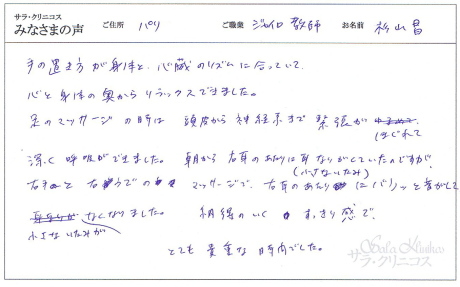 サラ・クリニコス
みなさまの声 ご住所 パリ ご職業 ジャイロ教師 お名前 杉山昌
手の置き方が身体と、心臓のリズムに合っていて、
心と身体の奥からリラックスできました。
足のマッサージの時は 頭皮から神経系まで 緊張が
ほぐれて
深く呼吸ができました。 朝から右耳のあたりに耳なりがしていたのですが、
(小さないたみ)
右手と右うでの マッサージで、右耳のあたりにパリッと音がして
なくなりました。 納得のいく すっきり感で、
小さないたみが
とても貴重な時間でした。
Sala Klinikos
サラ・クリニコス